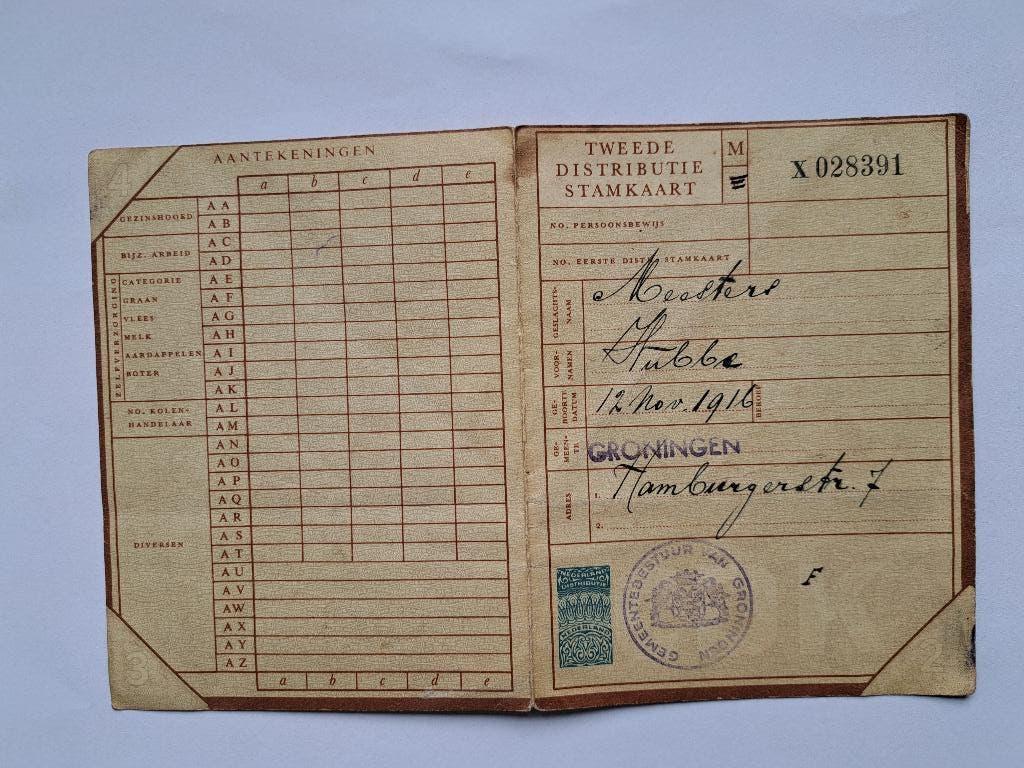 4
AANTEKENINGEN
a b c d e
GEZINSHOOFD
AA
AB
BIJZ. ARBEID
AC
AD
ZELFVERZORGING
CATEGORIE AE
GRAAN AF
VLEES AG
MELK AH
AARDAPPELEN AI
BOTER AJ
AK
NO. KOLEN-
HANDELAAR
AL
AM
AN
AO
AP
AQ
AR
DIVERSEN
AS
AT
AU
AV
AW
AX
AY
AZ
a b c d e
3
TWEEDE
DISTRIBUTIE
STAMKAART
M
X 028391
NO. PERSOONSBEWIJS
NO. EERSTE DISTR. STAMKAART
GESLACHTS-
NAAM
Meesters
VOOR-
NAMEN
Hubbe
GE-
BOORTE
DATUM
12 Nov. 1916
BEROEP
GE-
MEEN-
TE
GRONINGEN
ADRES
1. Hamburgerstr. 7
2.
NEDERLAND
DISTRIBUTIE
NEDERLAND
GEMEENTEBESTUUR VAN GRONINGEN
F
2